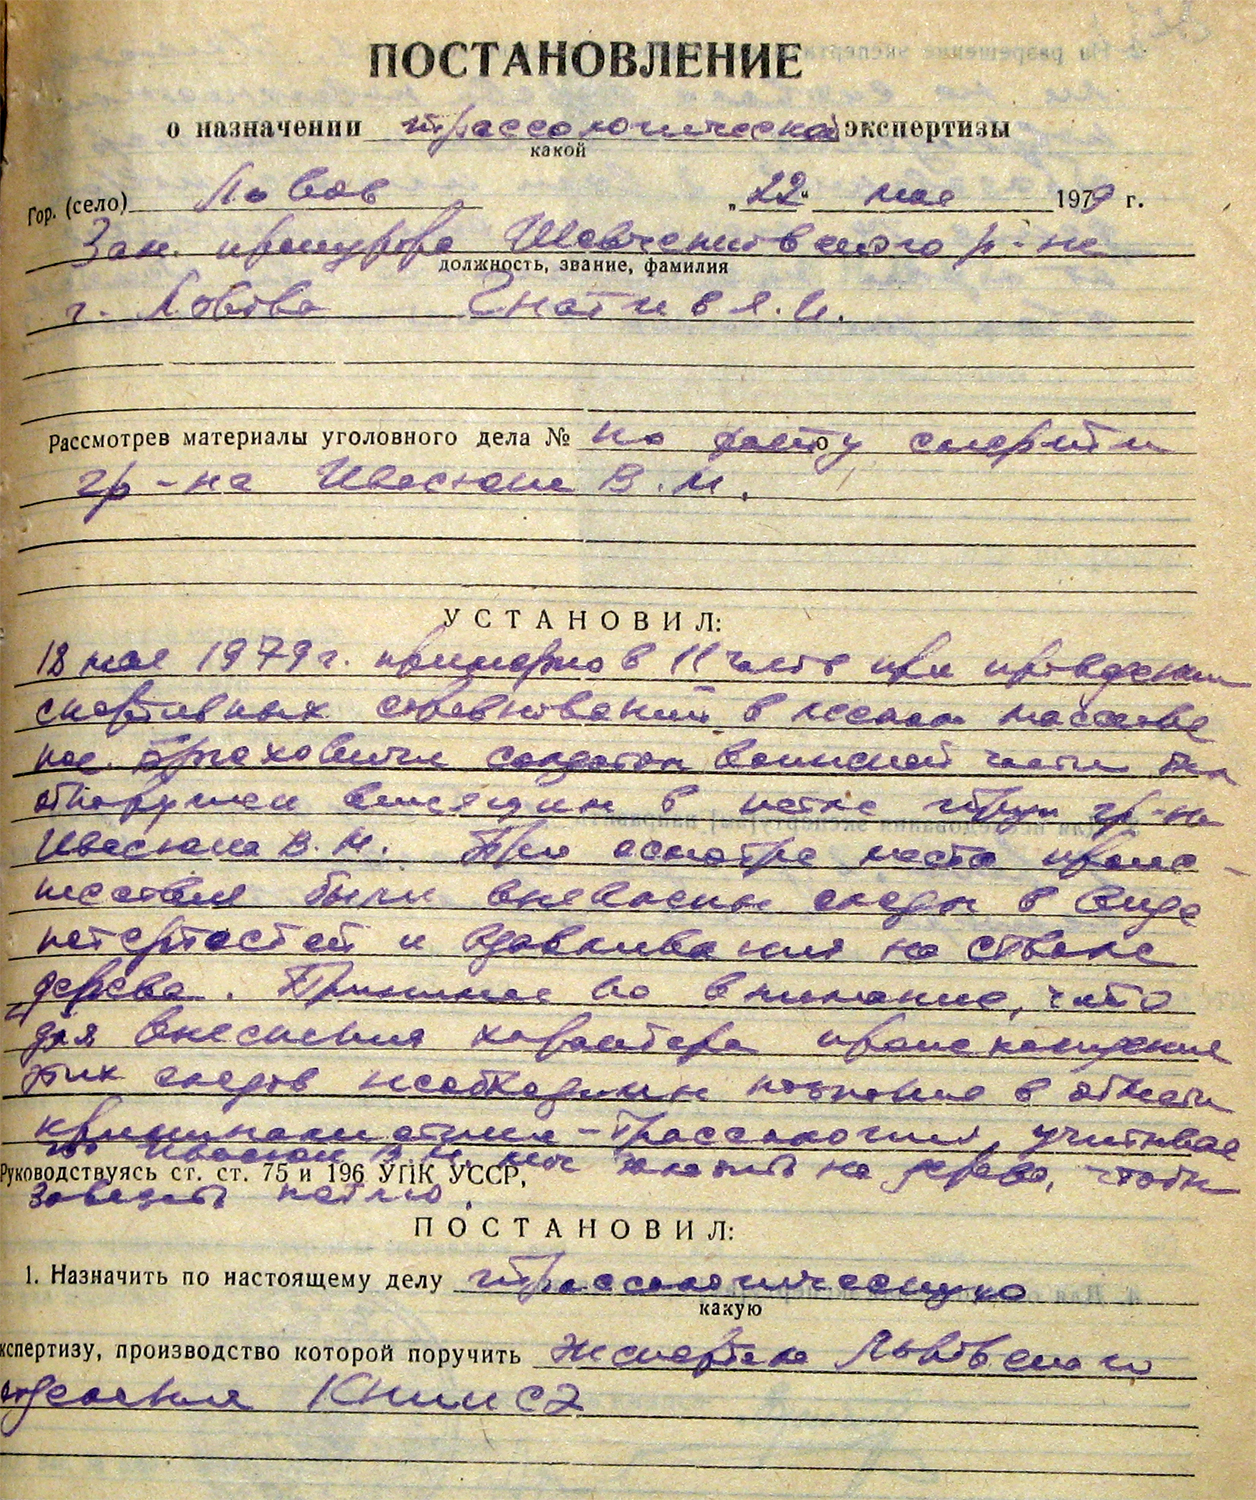 ПОСТАНОВЛЕНИЕ
о назначении трассологической экспертизы
какой
Гор. (село) Львов „22“ мая 1979 г.
Зам. прокурора Шевченковского р-на
должность, звание, фамилия
г. Львова Гнатив Я.И.
Рассмотрев материалы уголовного дела № по факту смерти
гр-на Ивасюка В.М.
УСТАНОВИЛ:
18 мая 1979 г. примерно в 11 часов при проведении
спортивных соревнований в лесном массиве
пос. Брюховичи солдатом воинской части был
обнаружен висящим в петле труп гр-на
Ивасюка В.М. При осмотре места проис-
шествия были выявлены следы в виде
потертостей и вдавливания на стволе
дерева. Принимая во внимание, что
для выяснения характера происхождения
этих следов необходимы познания в области
криминалистики-трассологии, учитывая
что Ивасюк В.М. мог залезть на дерево, чтобы
Руководствуясь ст. ст. 75 и 196 УПК УССР,
завязать петлю.
ПОСТАНОВИЛ:
1. Назначить по настоящему делу трассологическую
какую
кспертизу, производство которой поручить экспертам Львовского
отделения КНИИСЭ